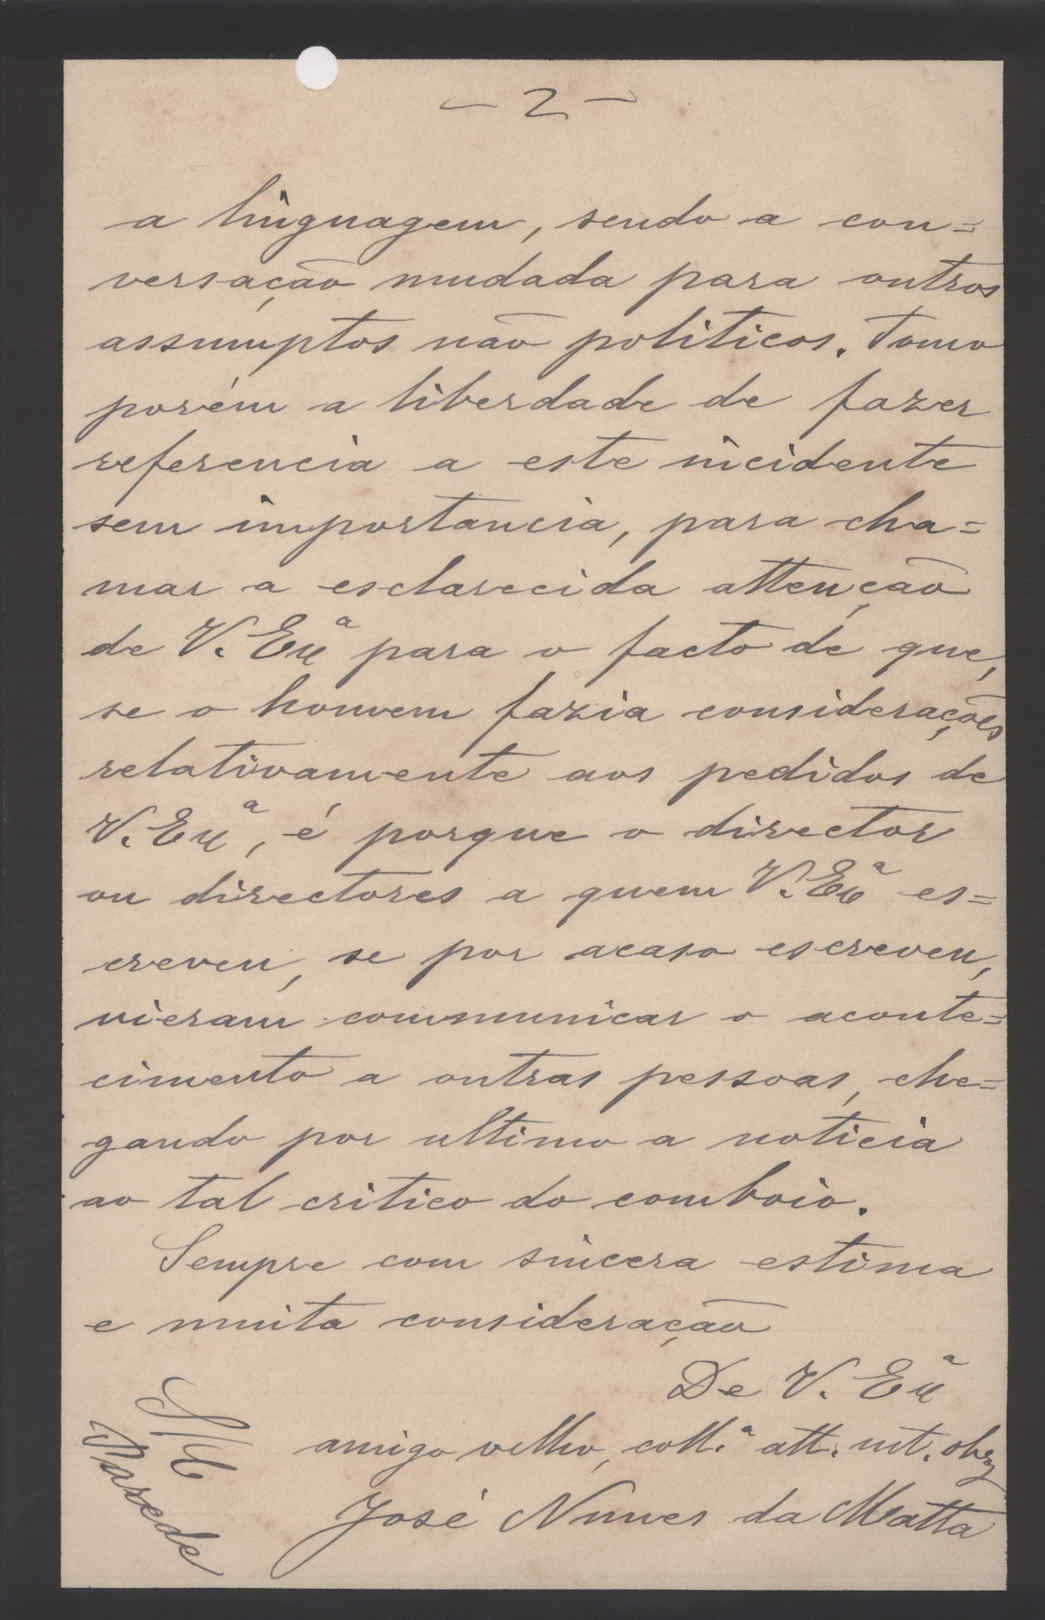 — 2 —
a linguagem, sendo a con=
versação mudada para outros
assumptos não politicos. Tomo
porém a liberdade de fazer
referencia a este incidente
sem importancia, para cha=
mar a esclarecida attenção
de V. Exª para o facto de que,
se o homem fazia considerações
relativamente aos pedidos de
V. Exª, é porque o director
ou directores a quem V. Exª es=
creveu, se por acaso escreveu,
vieram communicar o aconte=
cimento a outras pessoas, che=
gando por ultimo a noticia
ao tal critico do comboio.
Sempre com sincera estima
e muita consideração
De V. Exª
amigo velho, coll.ª att. mt. obrg
José Nunes da Matta
Parede